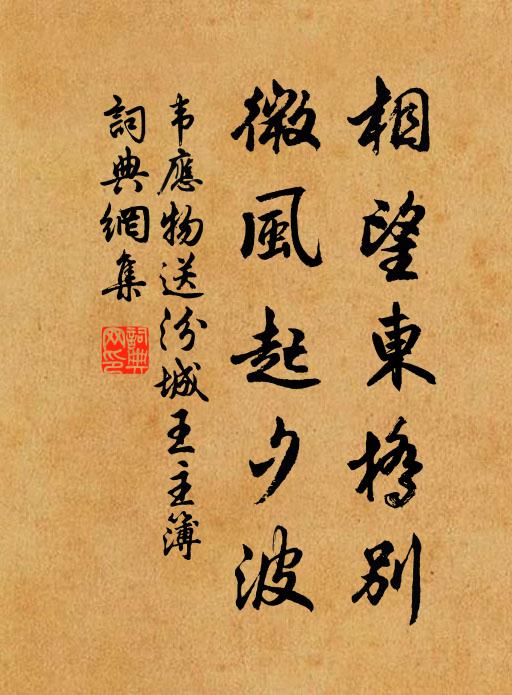 相望東橋別
微風起夕波
韦應物送汾城王主簿
詞典網集
詞典网印